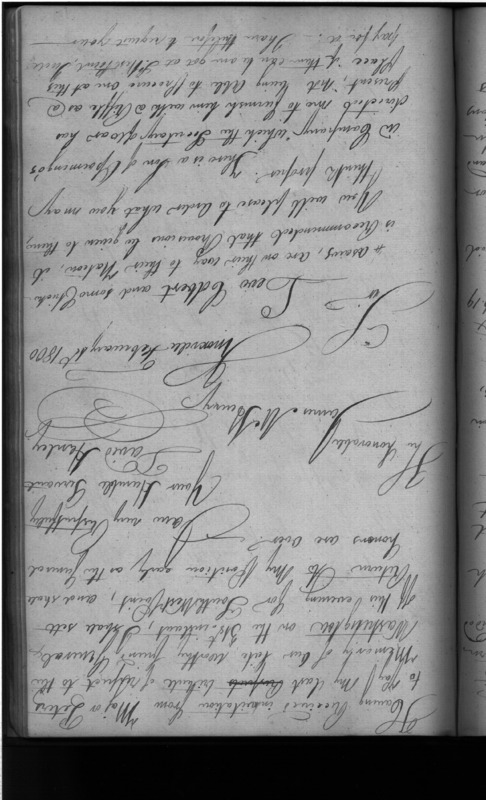 Having Received invitation from Major Peters
to pay my last tribute of respect to the
Memory of our late worthy friend General
Washington on the 31st instant, I shall sett
this evening for South West Point, and shall
Return to my Position early as the funeral
honors are over.
I am very Respectfully
Your Humble Servant
David Henley
The Honorable
James McHenry
Knoxville February 1800
Sir
Levi Colbert and some Chick
asaws, are on their way to this Nation, it
is Recommended that Provisions be given to them,
You will please to order what you may
think proper. There is a Son of Opamingo's
in Company, which the Secretary of War has
directed me to furnish him with a Riffle as a
present, not being able to procure one at this
place if there can be one got at Tellico,
pay for it. I have therefore to request your